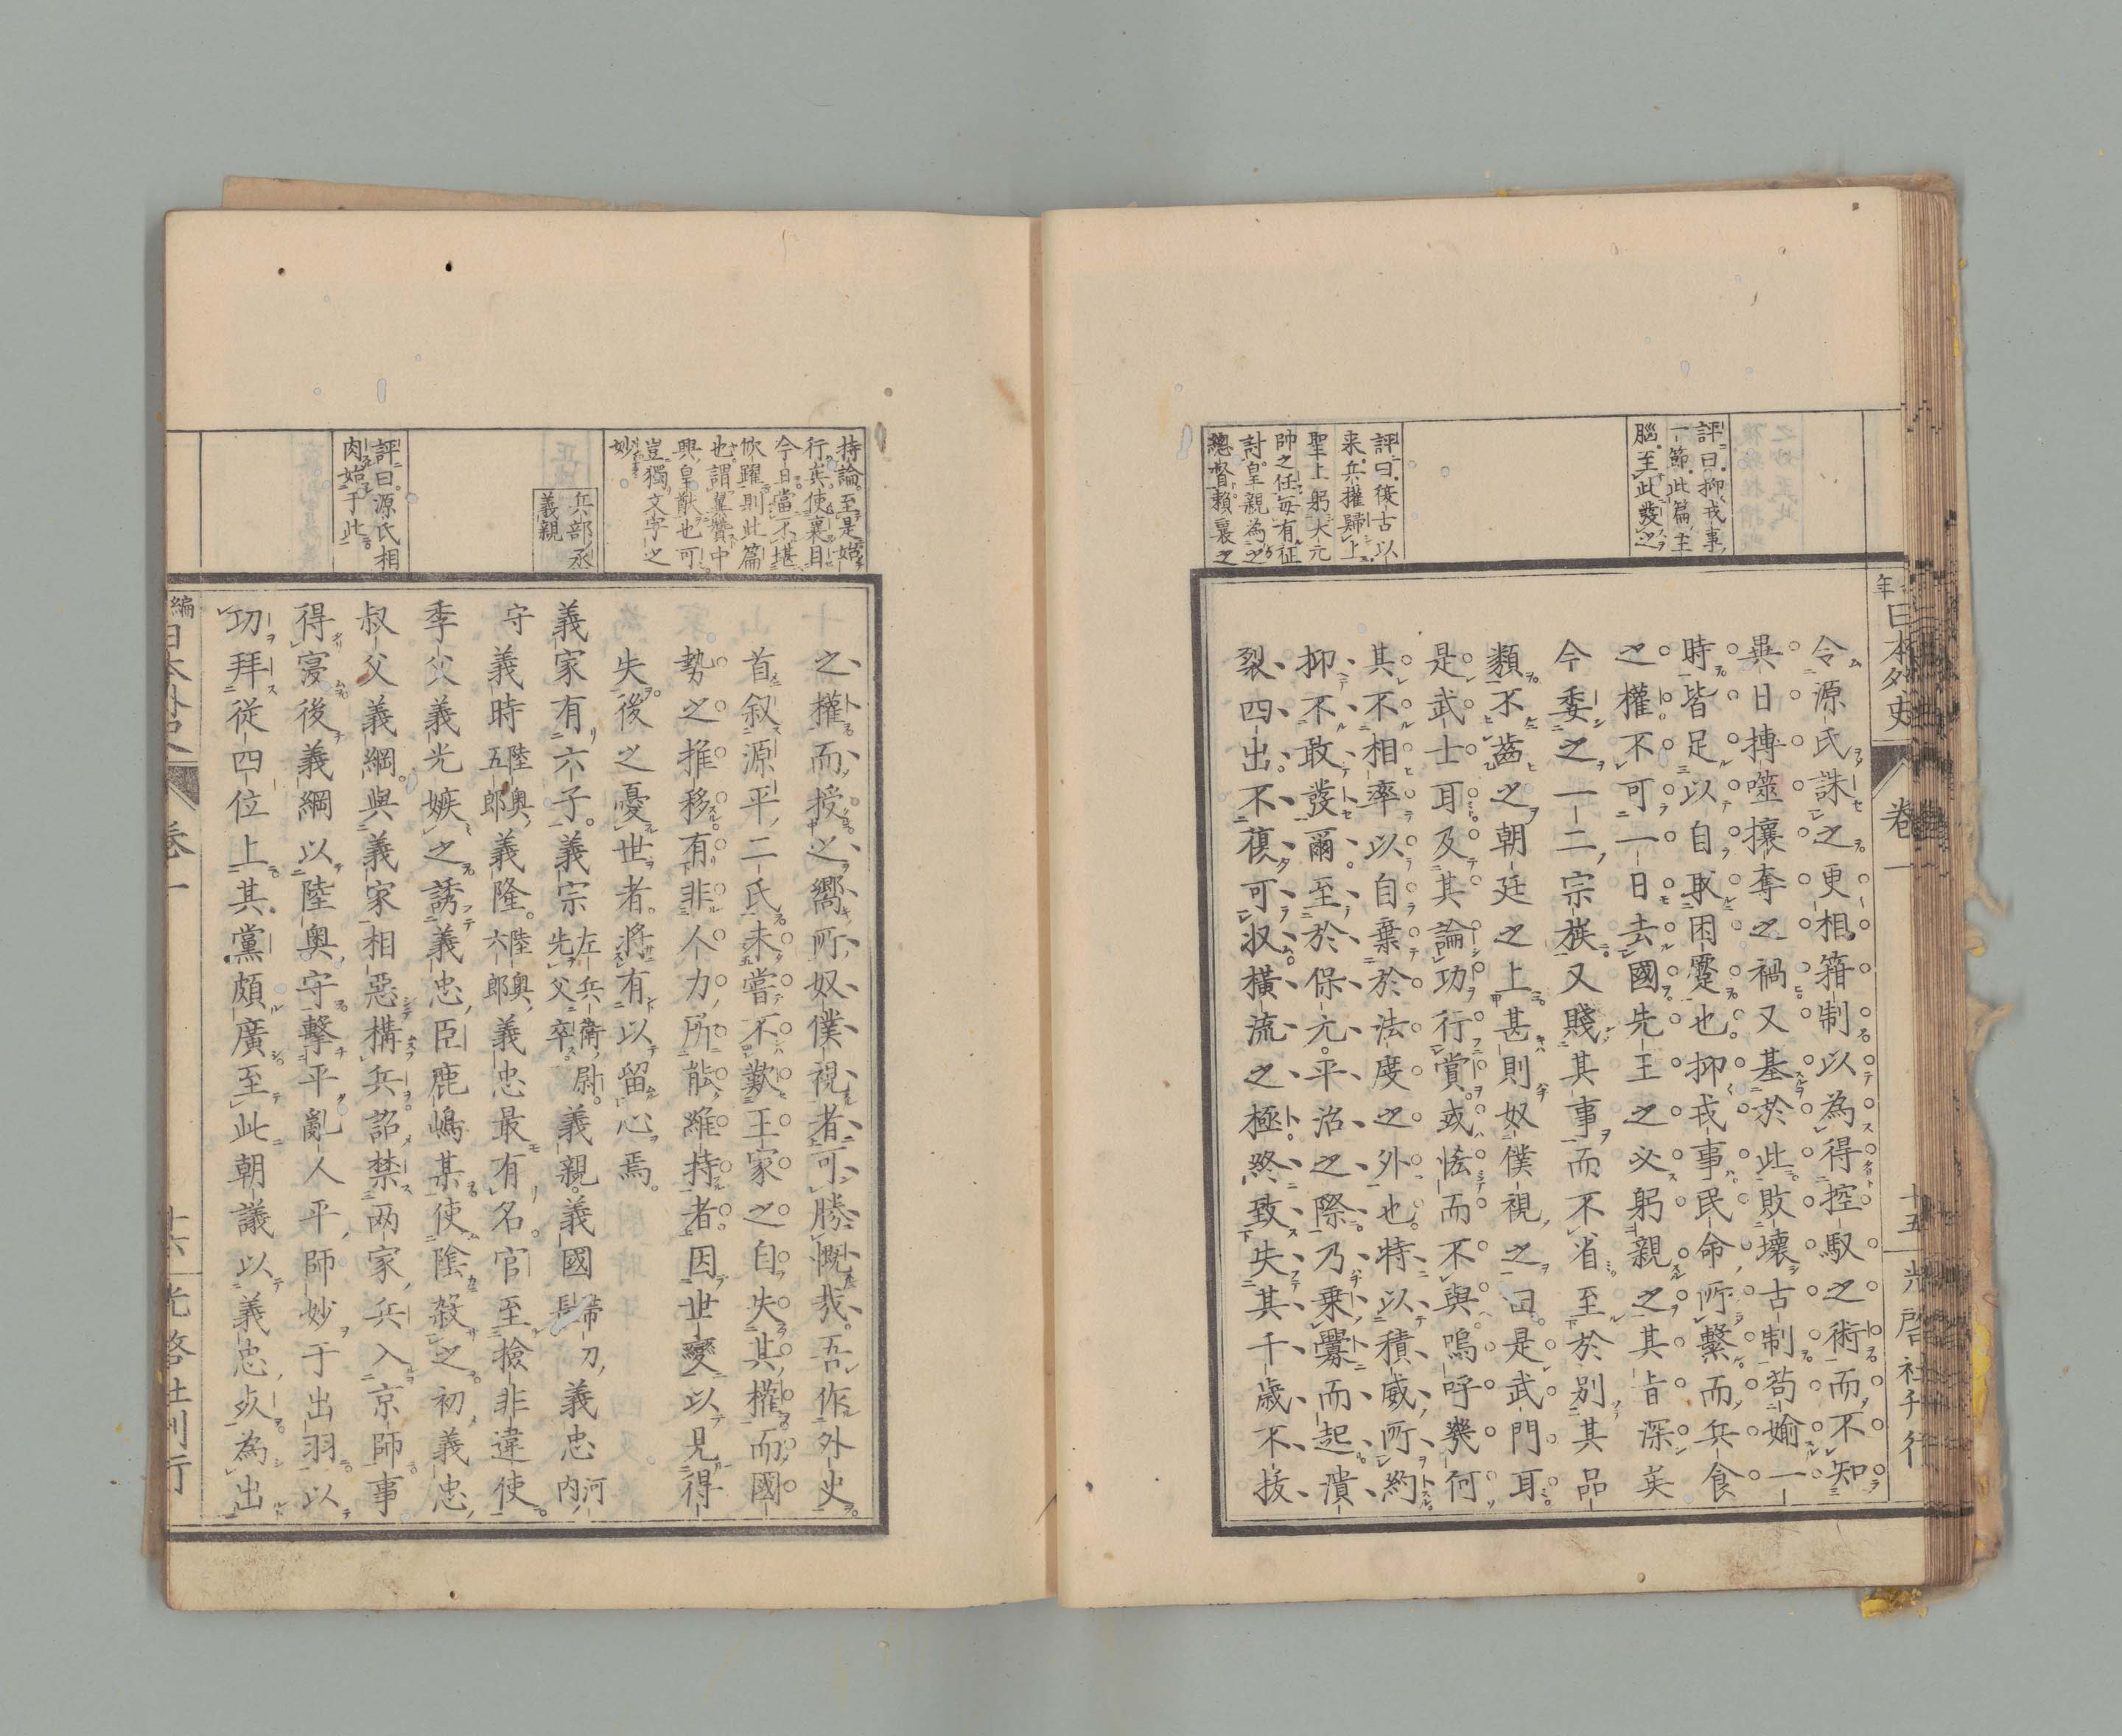 評曰抑戎事
一節此篇主
腦至此發之
評曰復古以
来兵權歸上
聖上躬大元
帥之任毎有征
討皇親為之
總督頼襄之
年
日本外史
卷一
十五
光啓社刊行
令源氏誅之更相箝制以為得控馭之術而不知
異日搏噬攘奪之禍又基於此敗壞古制苟媮一
時皆足以自取困躓也抑戎事民命所繫而兵食
之權不可一日去國先王之必躬親之其旨深矣
今委之一二宗族又賤其事而不省至於別其品
類不齒之朝廷之上甚則奴僕視之曰是武門耳
是武士耳及其論功行賞或恡而不與嗚呼幾何
其不相率以自棄於法度之外也特以積威所約
抑不敢發爾至於保元平治之際乃乗釁而起潰
裂四出不復可収横流之極終致失其千歳不拔
持論至是始
行矣使襄目
今日當不堪
欣躍則此篇
也謂翼贊中
興皇猷也可
豈獨文字之
妙
兵部丞
義親
評曰源氏相
肉始于此
之權而授之嚮所奴僕視者可勝慨哉吾作外史
首叙源平二氏未嘗不歎王家之自失其權而國
勢之推移有非人力所能維持者因世變以見得
失後之憂世者將有以留心焉
義家有六子義宗左兵衛尉先父卒義親義國歸刀義忠河内
守義時陸奥五郎義隆陸奥六郎義忠最有名官至撿非違使
季父義光嫉之誘義忠臣鹿嶋某使陰殺之初義忠
叔父義綱與義家相惡構兵詔禁兩家兵入京師事
得寢後義綱以陸奥守擊平亂人平師妙于出羽以
功拜從四位上其黨頗廣至此朝議以義忠死為出
編
日本外史
卷一
十六
光啓社刊行